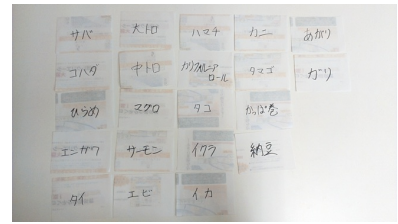 サバ
大トロ
ハマチ
カニ
あがり
コハダ
中トロ
カリフォルニア
ロール
タマゴ
ガリ
ひらめ
マグロ
タコ
かっぱ巻
エンガワ
サーモン
イクラ
納豆
タイ
エビ
イカ